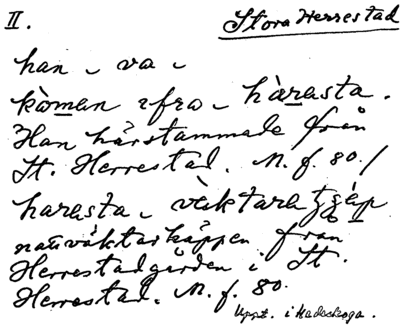 II. Stora Herrestad
han ˬ va ˬ
kòman ifra ˬ hàrasta.
Han härstammade från
St. Herrestad. M. f. 80./
harasta ˬ väktara
nattväktarkäppen från
Herrestadgården i St.
Herrestad. M. f. 80.
Uppt. i